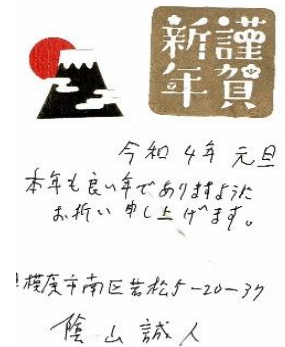 謹賀
新年
令和4年 元旦
本年も良い年でありますように
お祈い申し上げます。
模原市南区若松5-20-37
陰山誠人